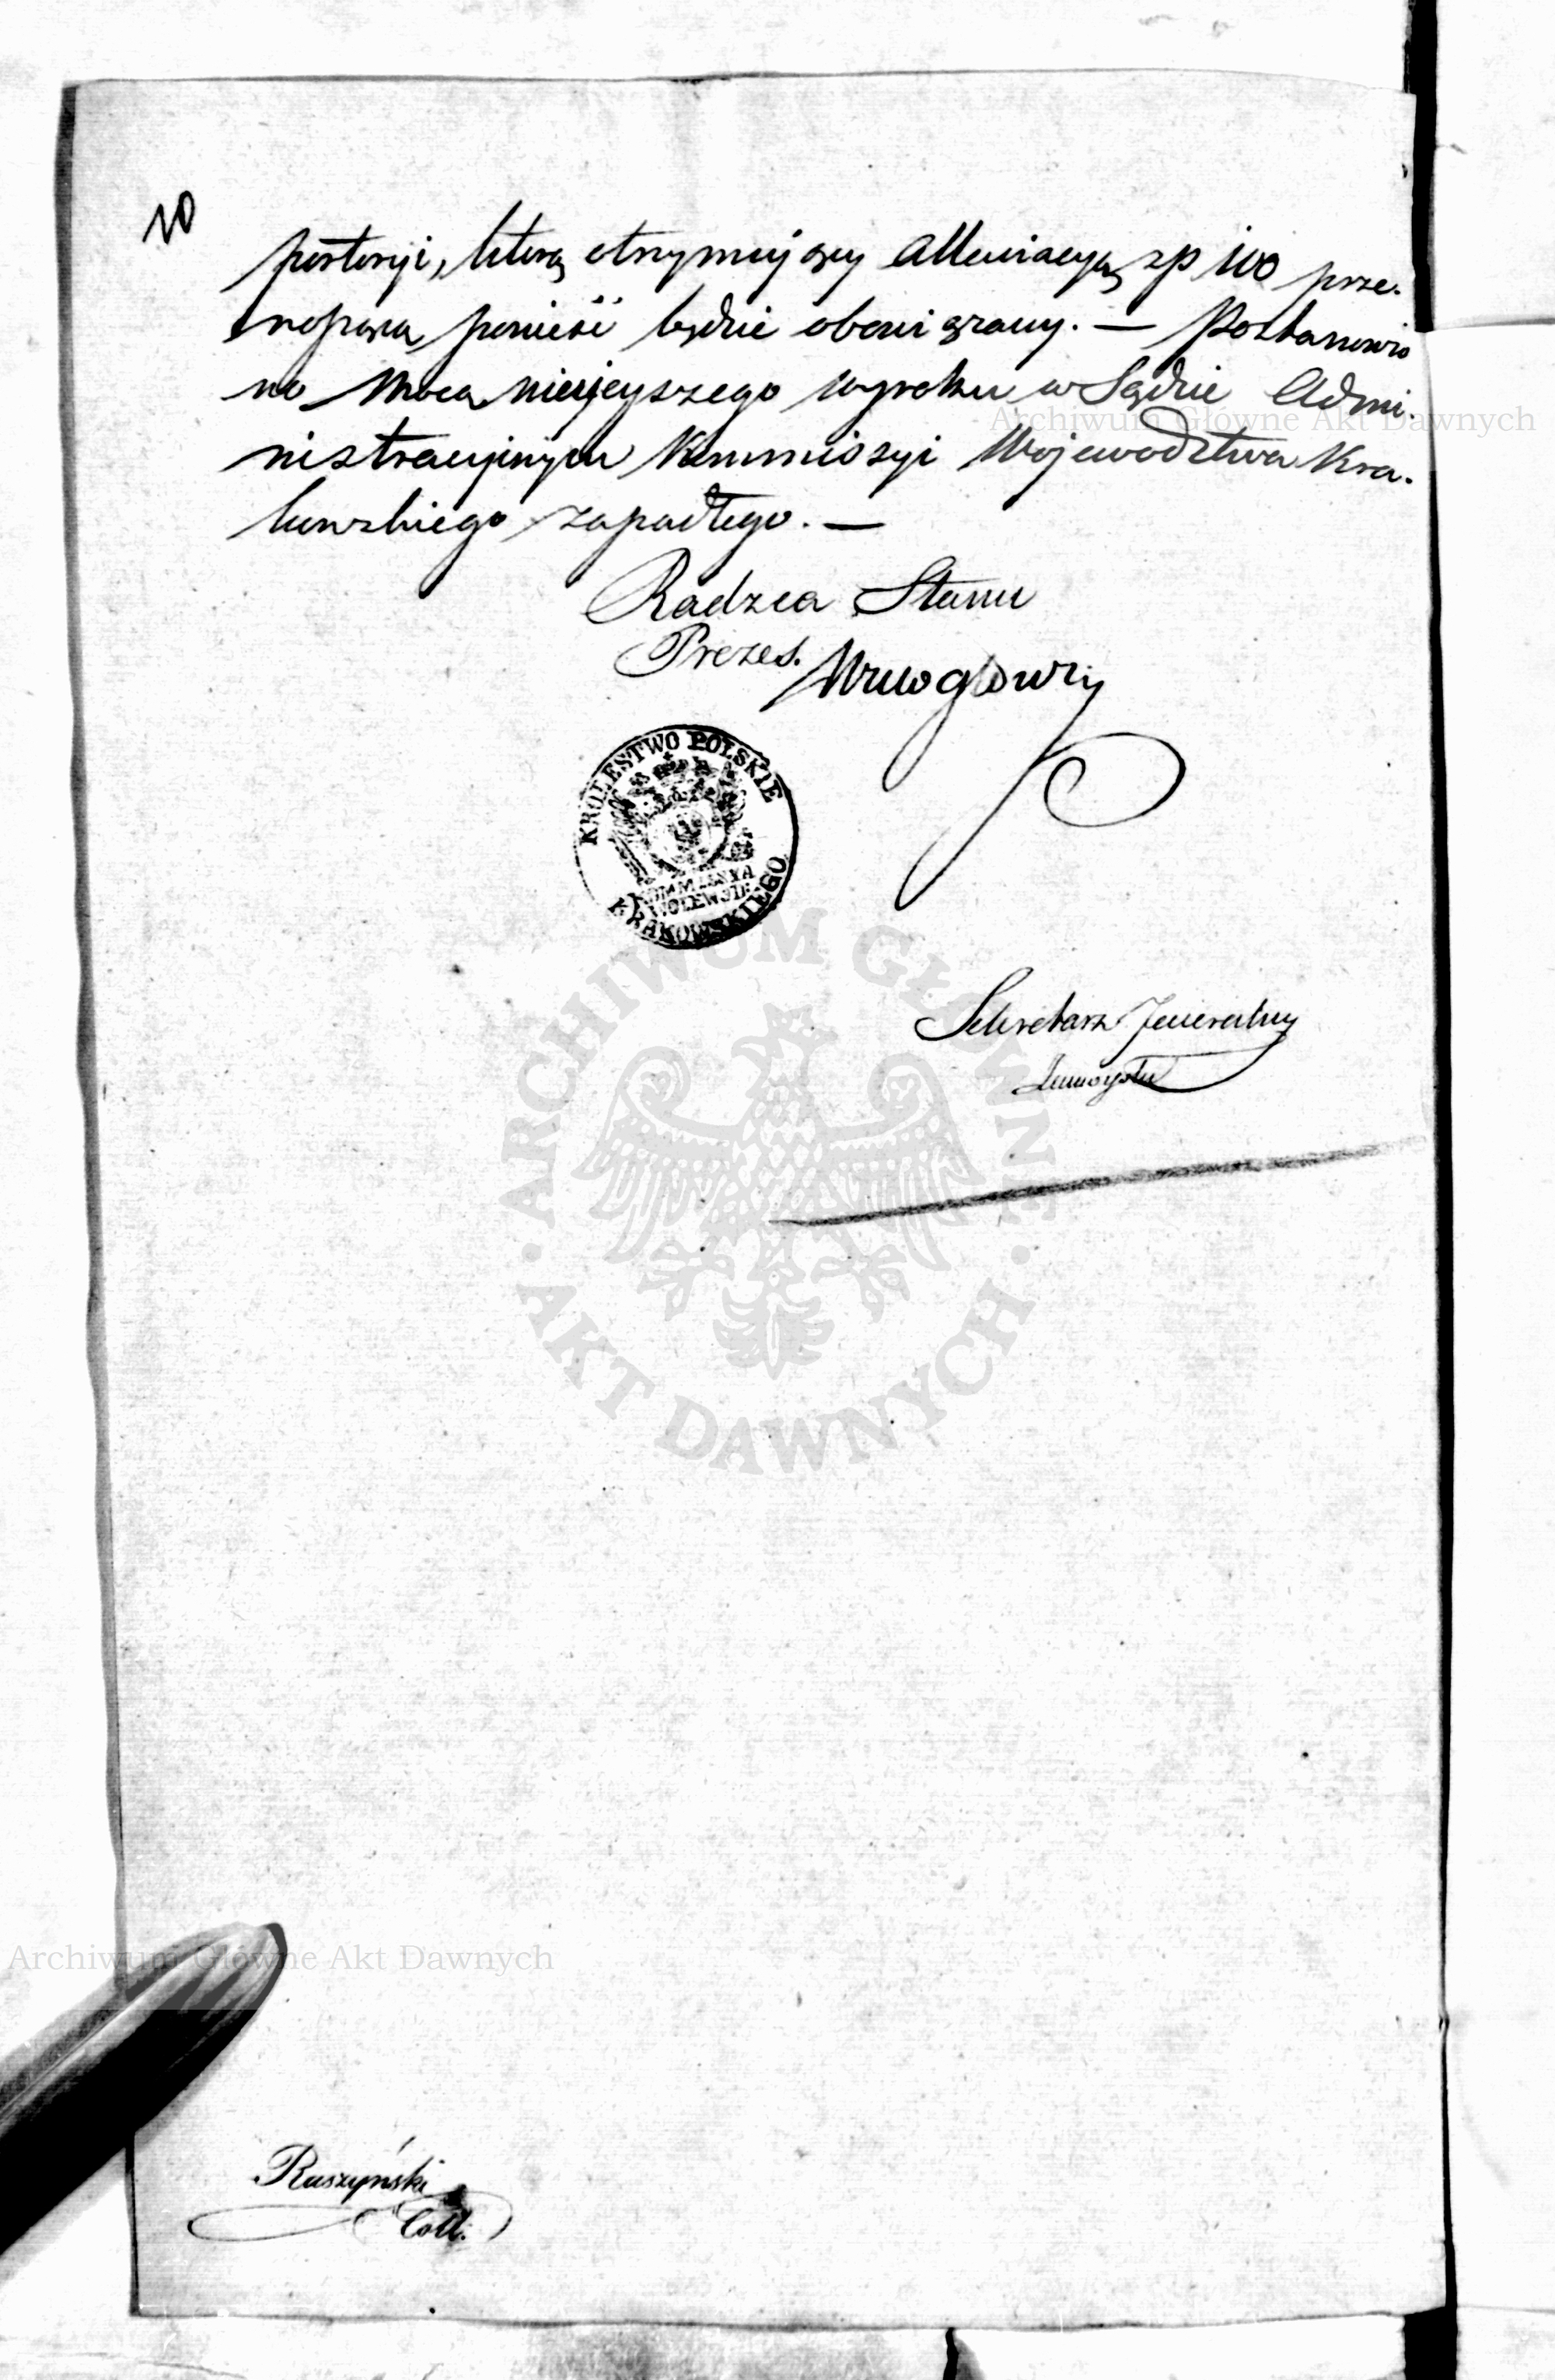 10
portoryi, którą otrzymujący Allewiacyą zp 100 prze-
nosząca ponieść będzie obowiązany. — Postanowio
no Mocą ninieyszego wyroku w Sądzie Admi-
nistracyinym Kommissyi Województwa Kra-
kowskiego zapadłego. —
Radzca Stanu
Prezes.
KROLESTWO POLSKIE
KOMMISSYA
WOIEWÓD:
KRAKOWSKIEGO
Sekretarz Jeneralny
Raszyński
Coll.
Archiwum Główne Akt Dawnych
ARCHIWUM GŁÓWNE
AKT DAWNYCH
Archiwum Główne Akt Dawnych